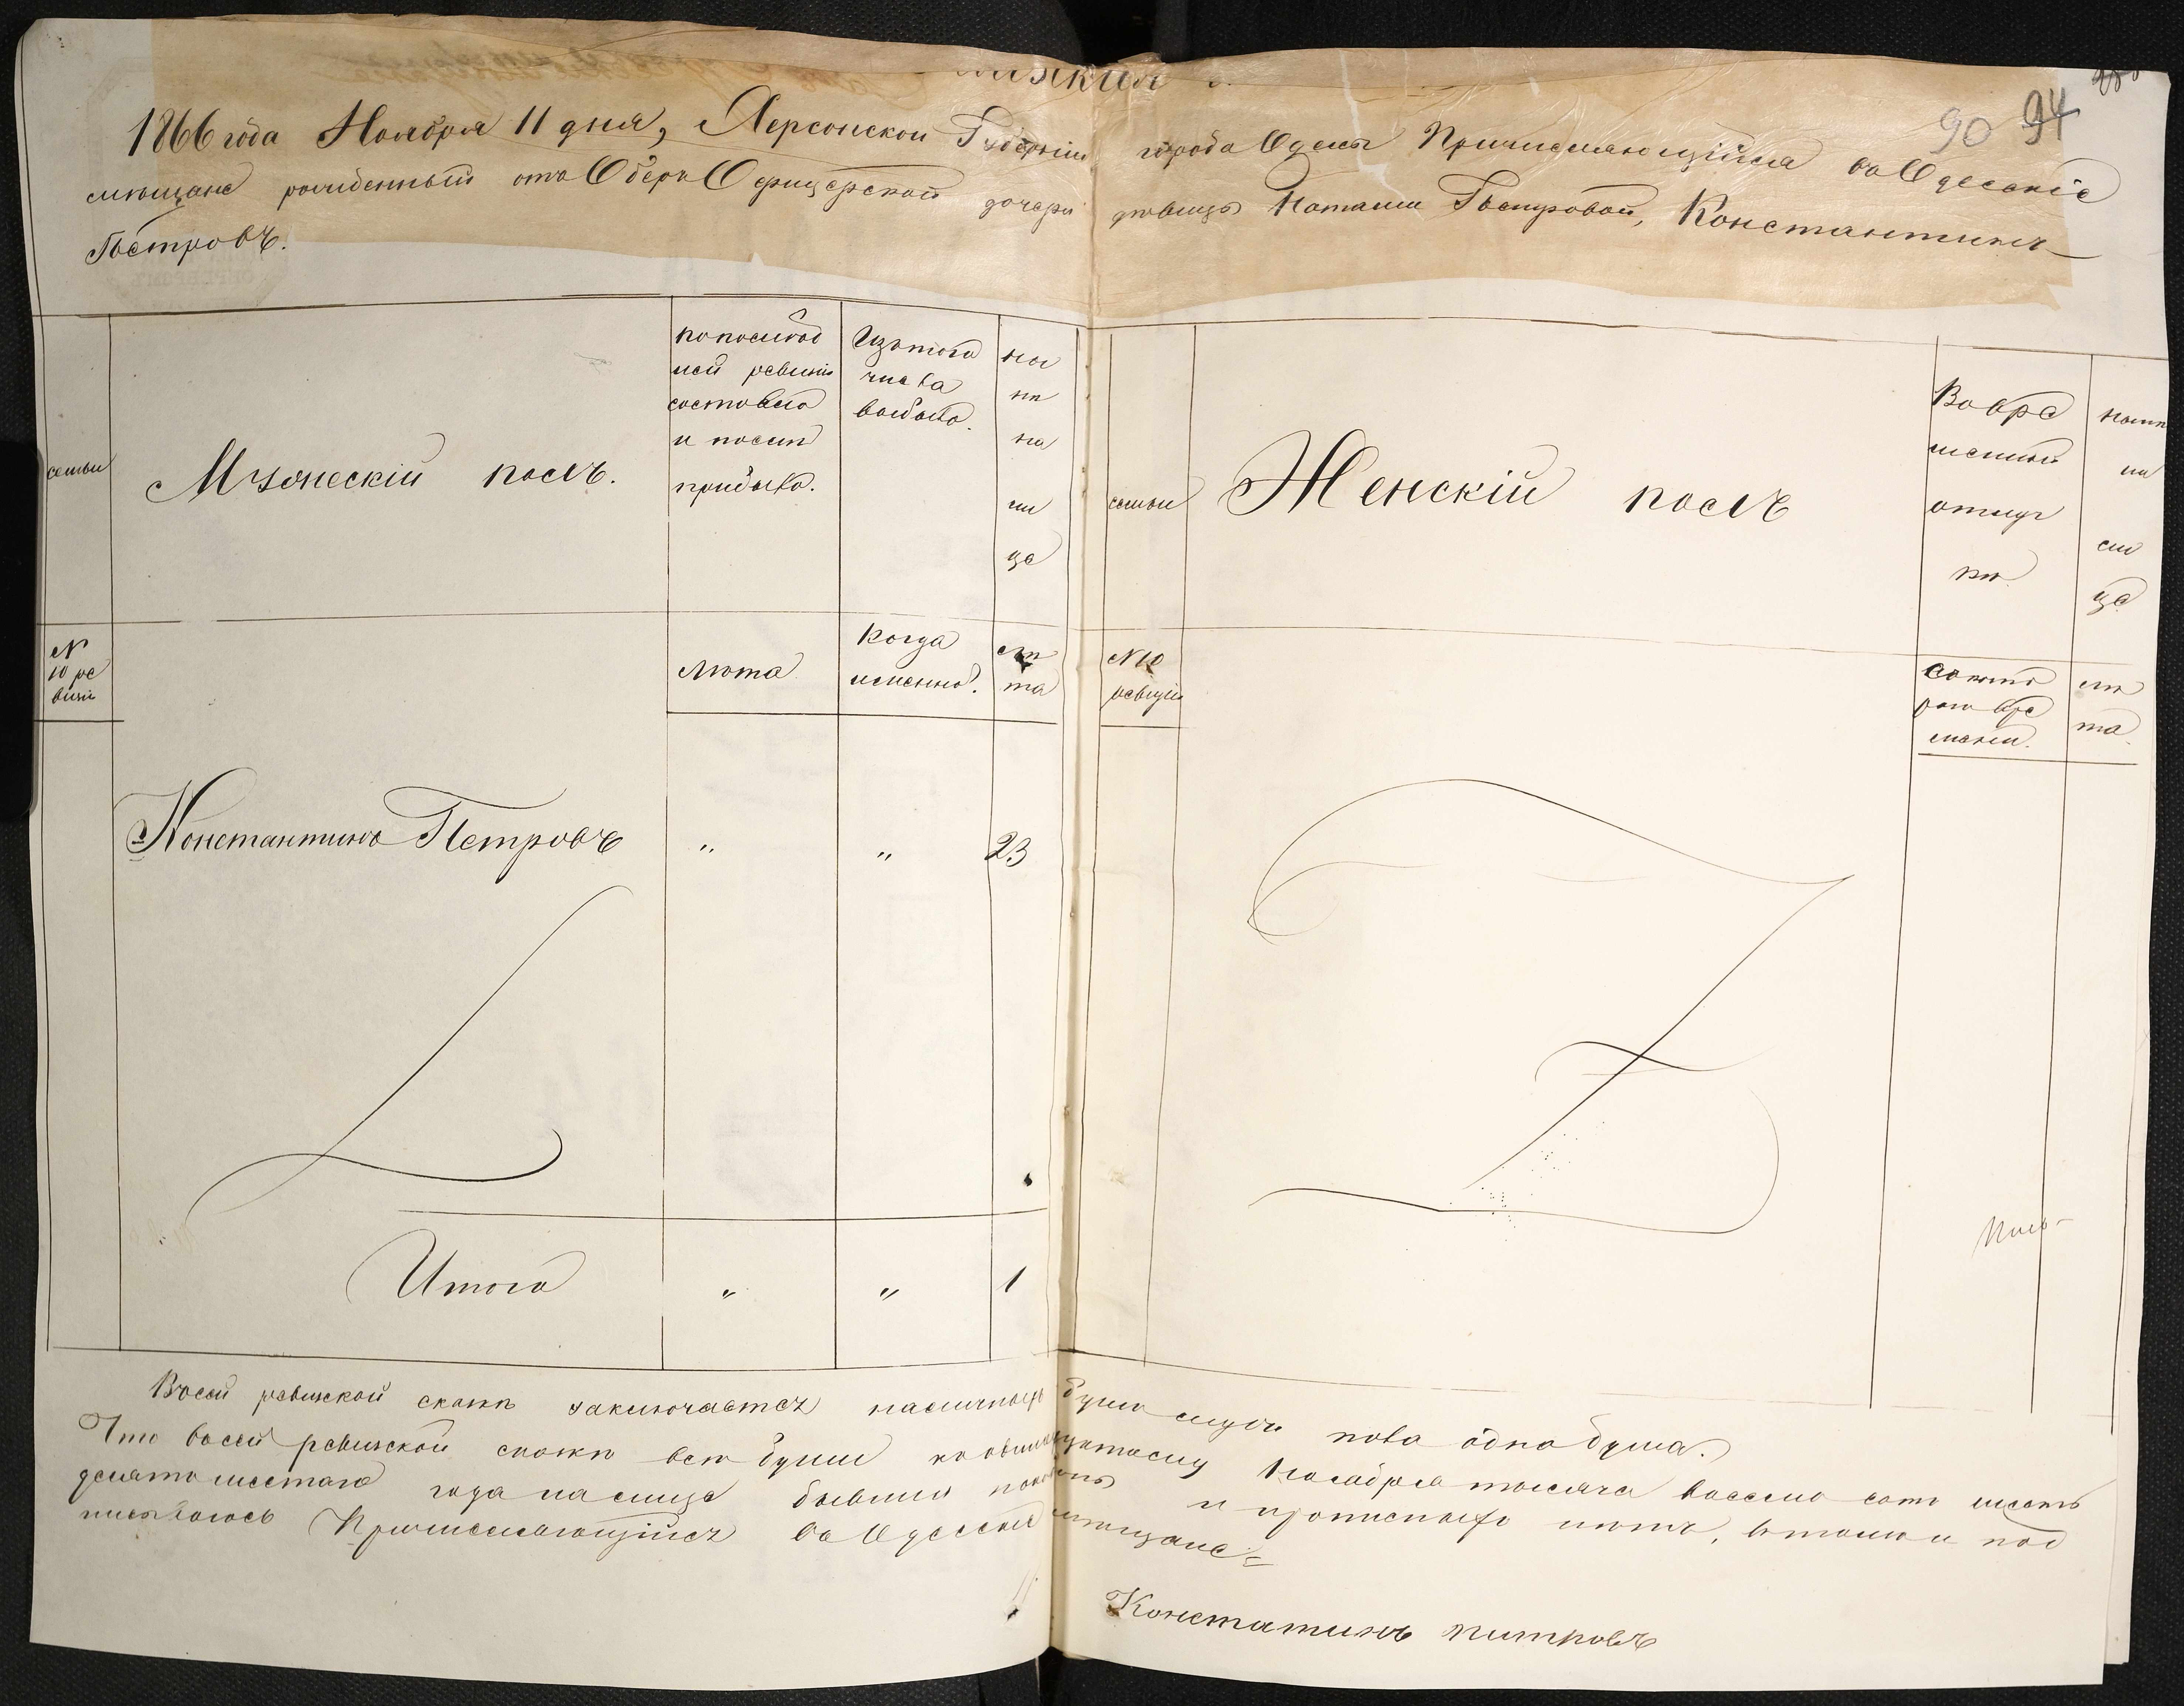 90 94
1866 года Ноября 11 дня, Херсонской Губерніи города Одессы Причисляющійся въ Одесскіе
мѣщане рожденный отъ Оберъ Офицерской дочери дѣвицы Наталіи Петровой, Константинъ
Петровъ.
семьи
Мужескій полъ.
по послѣд
ней ревизіи
состояло
и послѣ
прибыло.
Изъ того
числа
выбыло.
на
ли
це
семьи
Женскій полъ
Во вре
менной
отлуч
кѣ.
нынѣ
на
ли
це
№
10 ре
визіи
Лѣта
Когда
именно.
лѣ
та
№ 10
ревизіи
Съ кото
раго вре
мени.
лѣ
та.
Константинъ Петровъ " " 23
Итого " " 1
Въ сей ревизской сказкѣ заключается наличныхъ душъ мужеска пола одна душа.
Что въ сей ревизской сказкѣ всѣ души Ноября тысяча восемь сотъ шесть
десять шестаго года на лице бывшія показаны и прописныхъ нѣтъ, въ томъ и под
писываюсь Причисляющійся въ Одесскіе мѣщане
Констатинъ питровъ